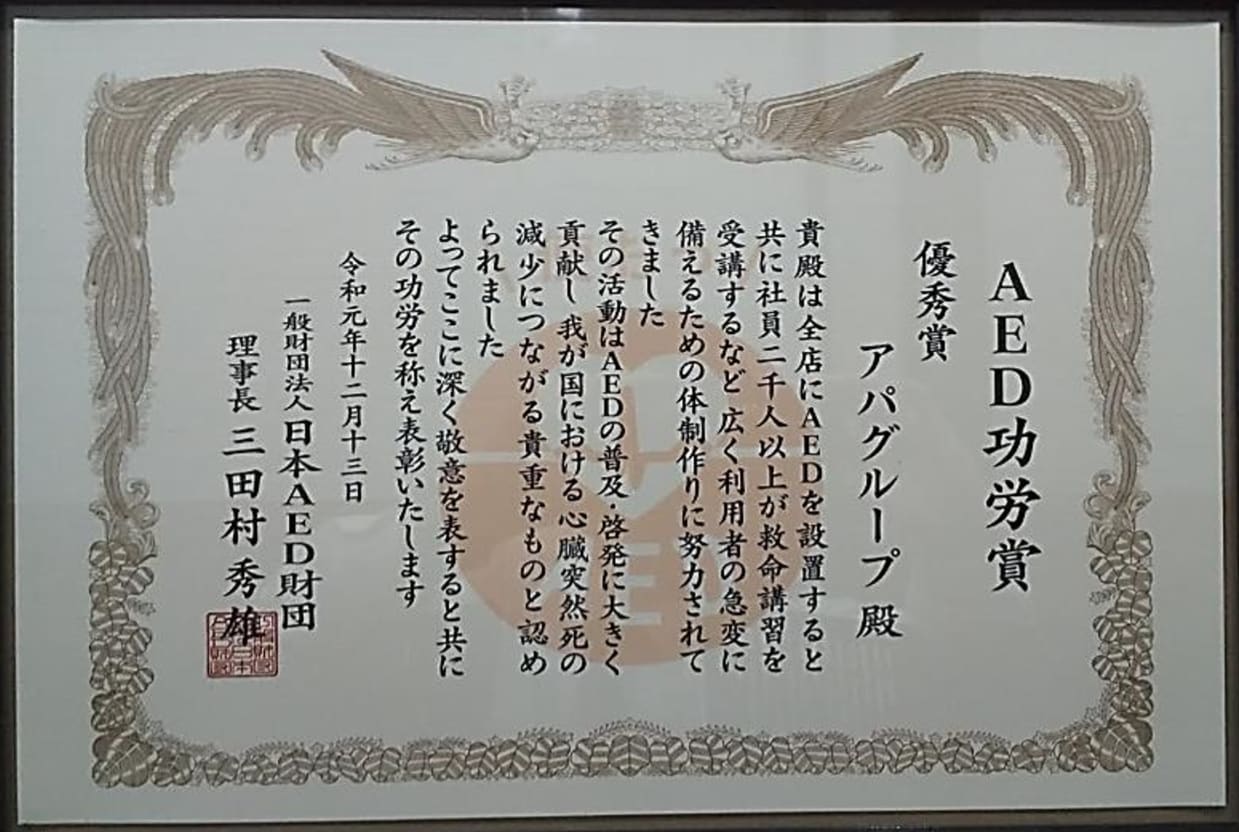 AED功労賞
優秀賞
アパグループ 殿
貴殿は全店にAEDを設置すると
共に社員二千人以上が救命講習を
受講するなど 広く利用者の急変に
備えるための体制作りに努力されて
きました
その活動はAEDの普及・啓発に大きく
貢献し 我が国における心臓突然死の
減少につながる貴重なものと認め
られました
よってここに深く敬意を表すると共に
その功労を称え表彰いたします
令和元年十二月十三日
一般財団法人日本AED財団
理事長 三田村秀雄